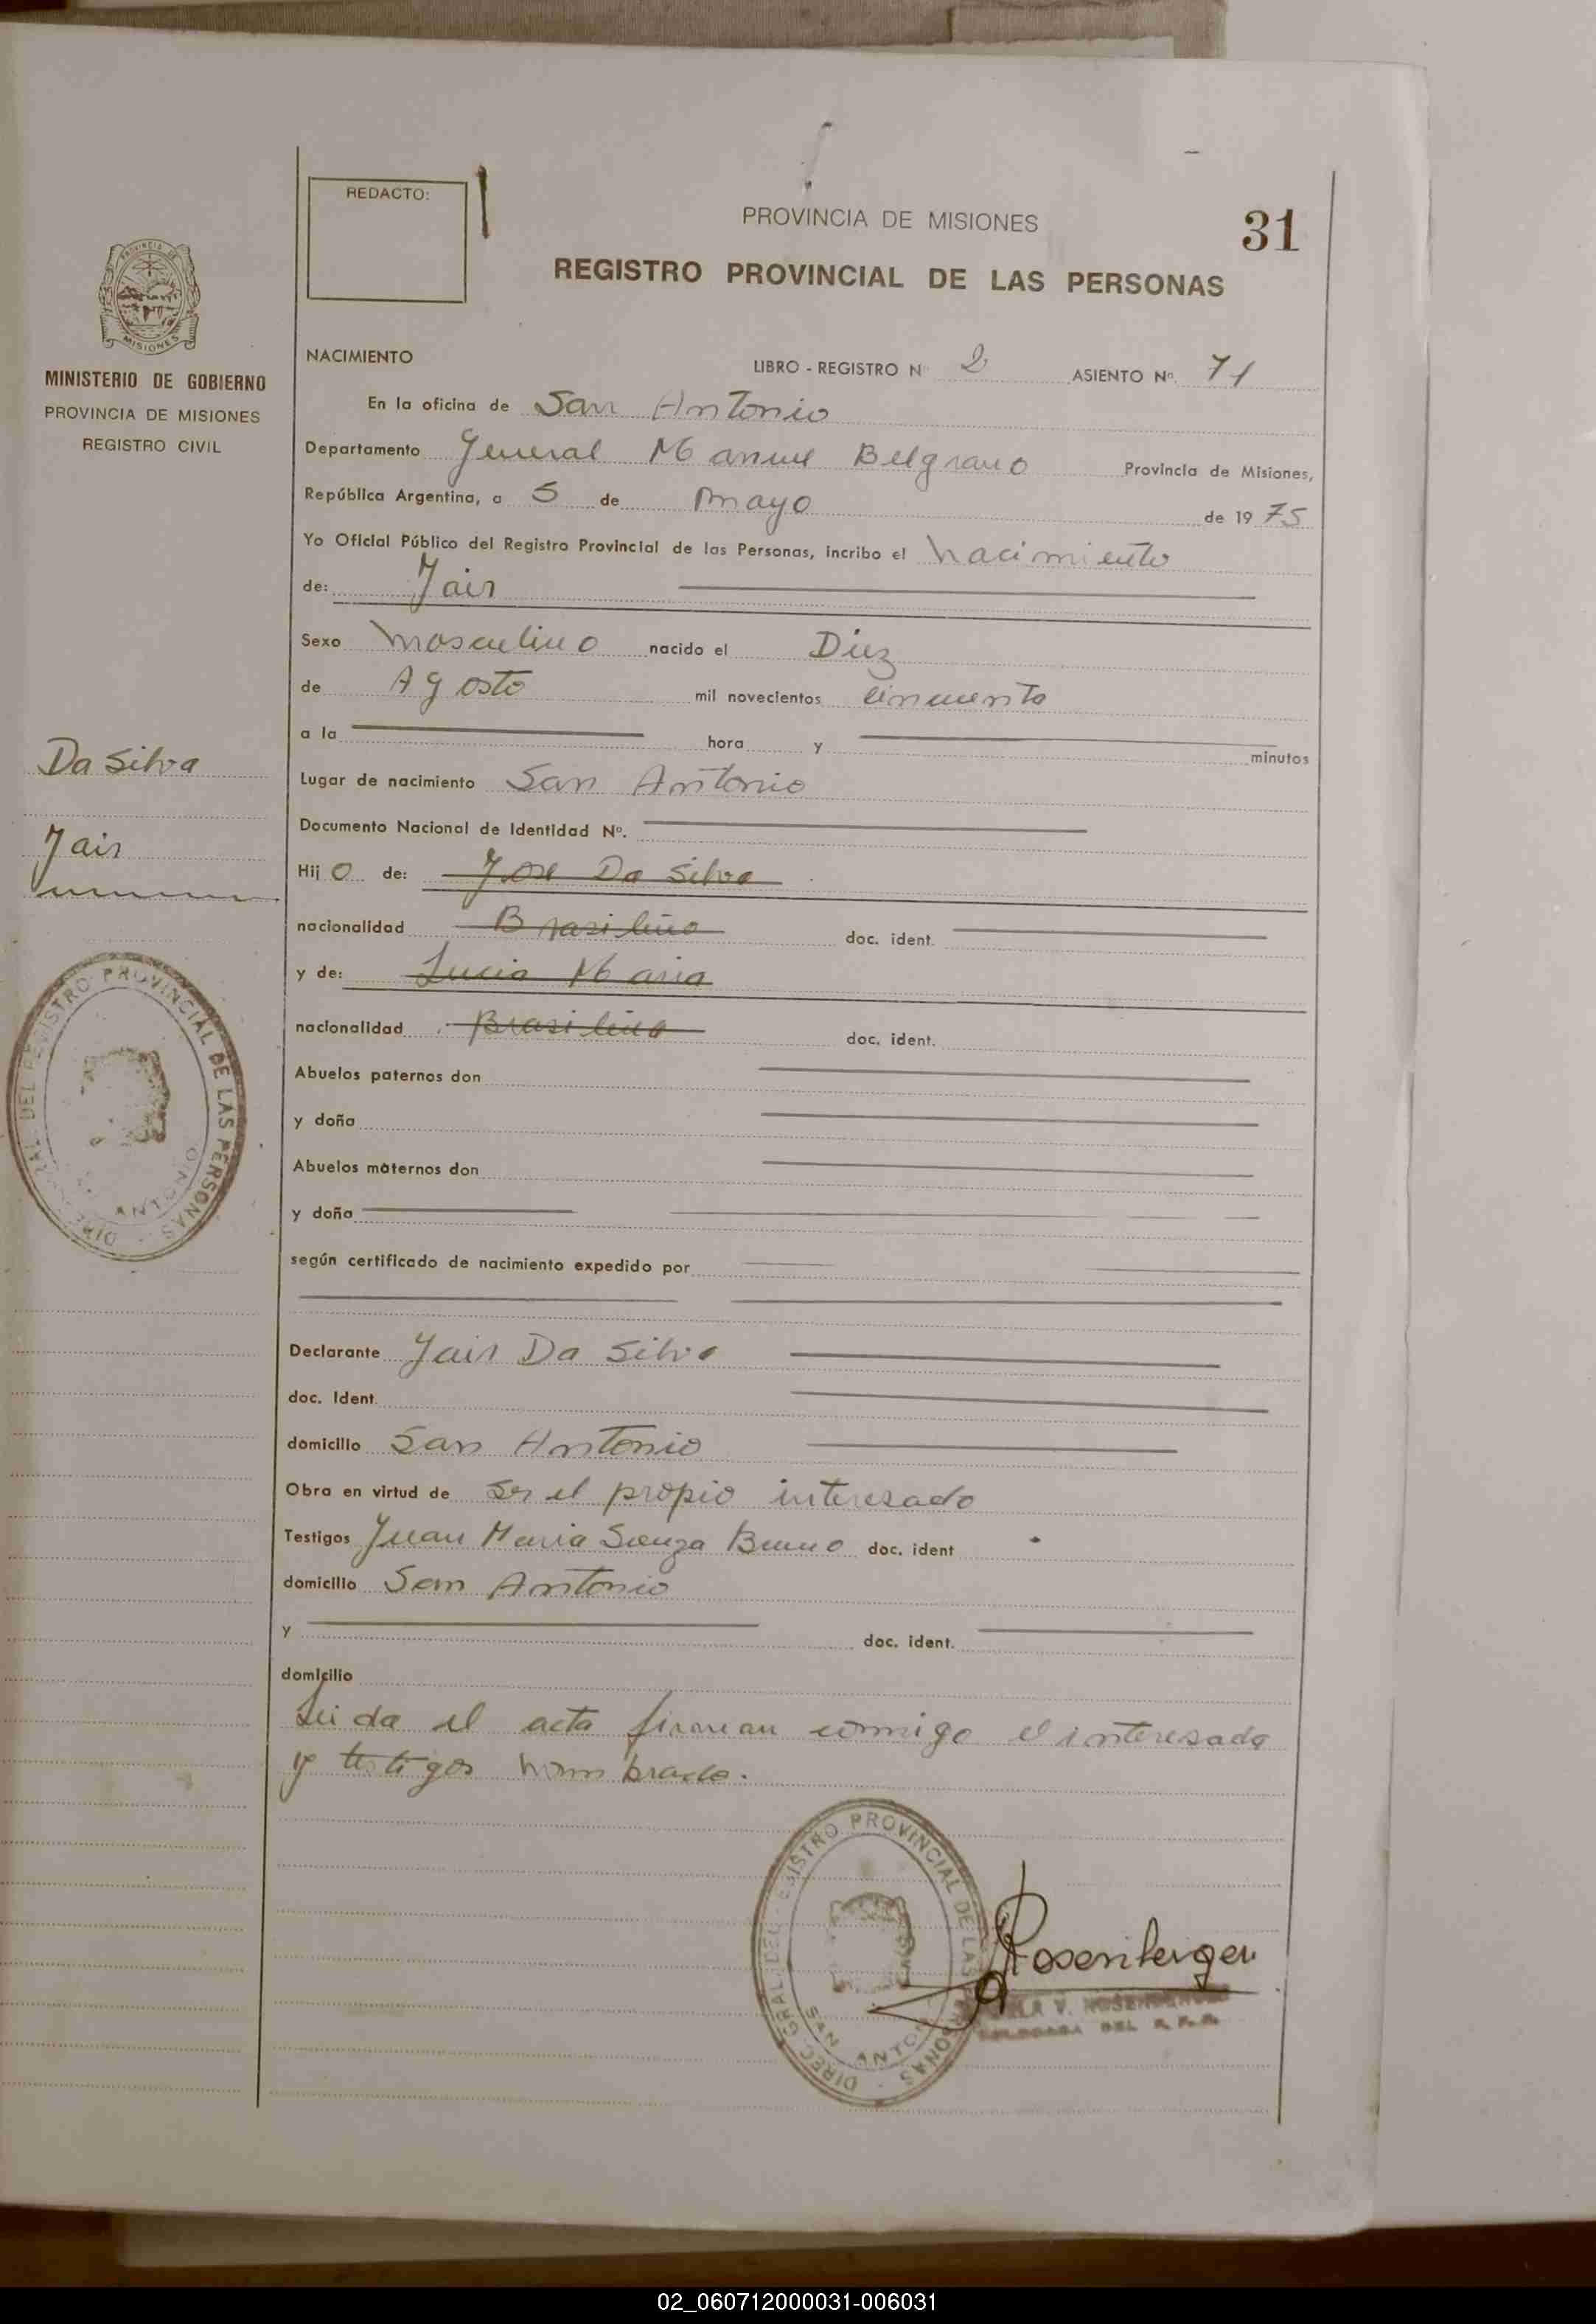 REDACTO:
PROVINCIA DE MISIONES
31
REGISTRO PROVINCIAL DE LAS PERSONAS
MISIONES
MINISTERIO DE GOBIERNO
PROVINCIA DE MISIONES
REGISTRO CIVIL
NACIMIENTO LIBRO - REGISTRO Nº 2 ASIENTO Nº. 71
En la oficina de San Antonio
Departamento General Manuel Belgrano Provincia de Misiones,
República Argentina, a 5 de mayo de 1975
Yo Oficial Público del Registro Provincial de las Personas, incribo el nacimiento
de: Jair
Sexo masculino nacido el Diez
de Agosto mil novecientos cincuenta
a la hora y minutos
Da Silva
Lugar de nacimiento San Antonio
Documento Nacional de Identidad Nº.
Jair
Hijo de: Jose Da Silva
nacionalidad Brasileño doc. ident.
y de: Lucia Maria
nacionalidad Brasileña doc. ident.
Abuelos paternos don
y doña
Abuelos maternos don
y doña
según certificado de nacimiento expedido por
DEL REGISTRO PROVINCIAL DE LAS PERSONAS
ANTONIO
Declarante Jair Da Silva
doc. Ident.
domicilio San Antonio
Obra en virtud de Ser el propio interesado
Testigos Juan Maria Souza Bueno doc. ident
domicilio San Antonio
y doc. ident.
domicilio
Leida el acta firman conmigo el interesado
y testigos nombrado.
DIREC. GRAL. DEL REGISTRO PROVINCIAL DE LAS PERSONAS
SAN ANTONIO
Rosenberger
V. ROSENBERGER
DEL R. P. P.
02_060712000031-006031